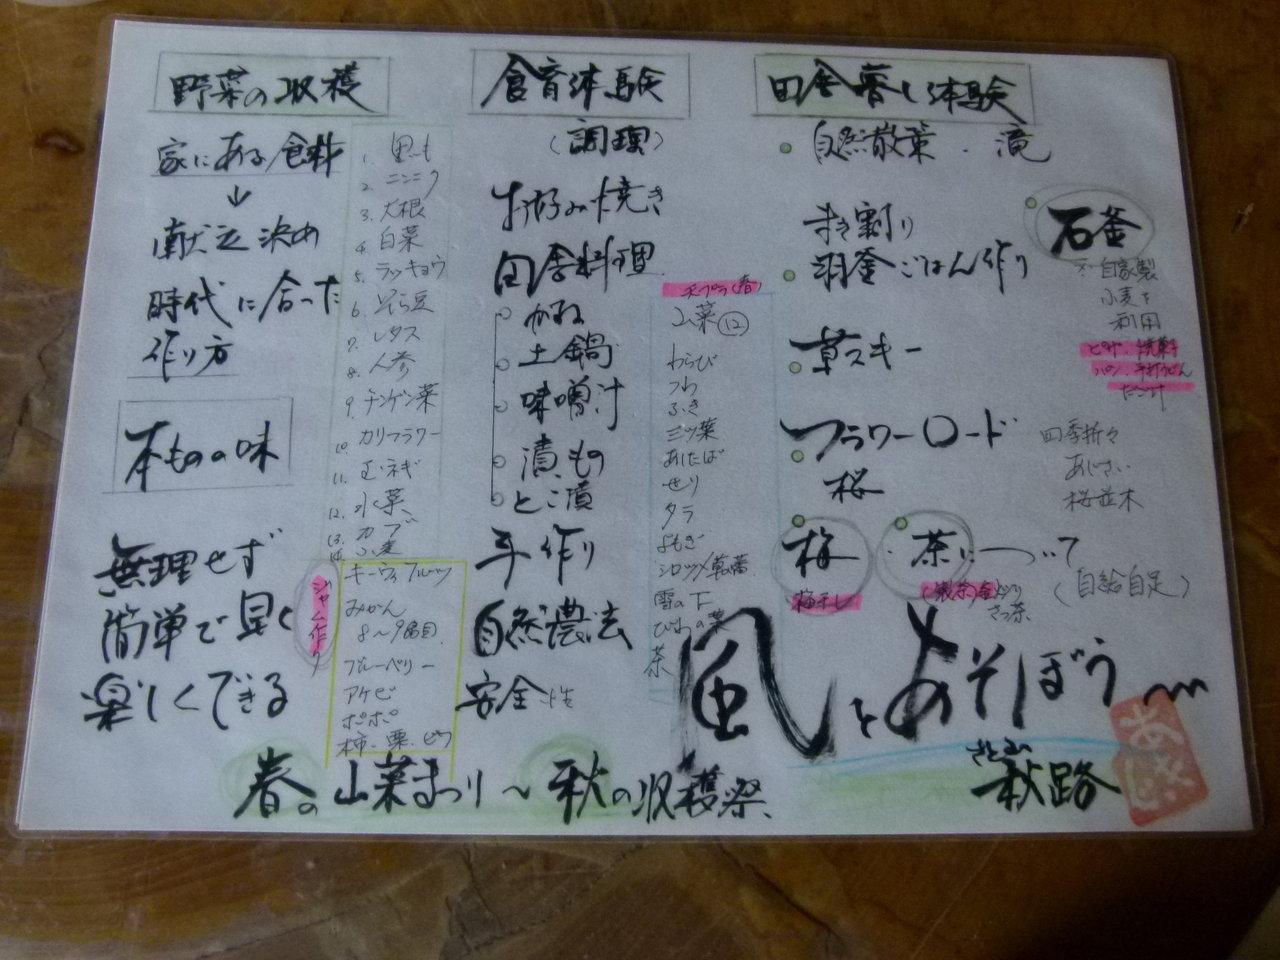 野菜の収穫
家にある食料
↓
献立決め
時代に合った
作り方
本ものの味
無理せず
簡単で早く
楽しくできる
1. 里いも
2. ニンニク
3. 大根
4. 白菜
5. ラッキョウ
6. そら豆
7. レタス
8. 人参
9. チンゲン菜
10. カリフラワー
11. 玉ネギ
12. 水菜
13. カブ
14. 小麦
ジャム作り
キーウィフルーツ
みかん
8〜9品目
ブルーベリー
アケビ
ポポー
柿、栗、ビワ
食育体験
(調理)
お好み焼き
田舎料理
がね
土鍋
味噌汁
漬もの
とこ漬
手作り
自然農法
安全性
天プラ(春)
山菜⑫
わらび
つわ
ふき
三ツ葉
あしたば
せり
タラ
よもぎ
シロツメ草
雪の下
びわの葉
茶
田舎暮し体験
自然散策・滝
まき割り
羽釜ごはん作り
草スキー
フラワーロード
桜
梅・茶について
梅干し
(自給自足)
石釜
自家製
小麦を
利用
ピザ、焼菓子
パン、手打うどん
だご汁
四季折々
あじさい
桜並木
風とあそぼう
春の山菜まつり〜秋の収穫祭
秋路